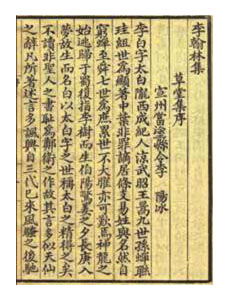 李翰林集
草堂集序
宣州當塗縣令李陽冰
李白字太白隴西成紀人涼武昭王暠九世孫蟬聯
珪組世為顯著中葉非罪謫居條支易姓與名然自
窮蟬至舜七世為庶累世不大曜亦可歎焉神龍之
始逃歸于蜀復指李樹而生伯陽驚姜之夕長庚入
夢故生而名白以太白字之世稱太白之精得之矣
不讀非聖人之書恥為鄭衛之作故其言多似天仙
之辭凡所著述言多諷興自三代已來風騷之後馳